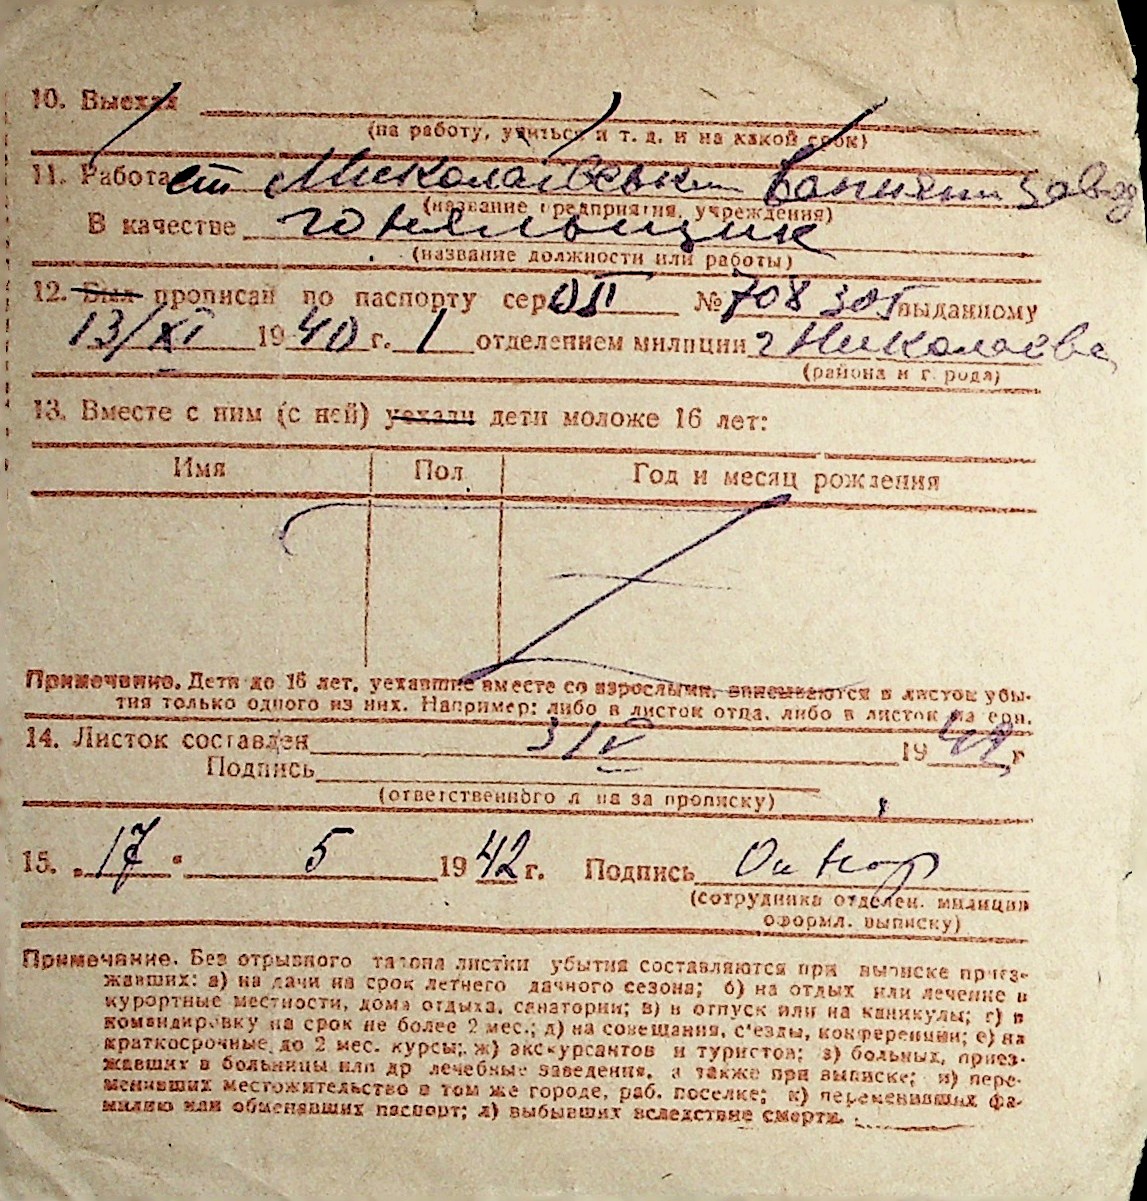 10. Выехал
(на работу, учиться и т. д. и на какой срок)
11. Работа ст Миколаївськи завод
(название предприятия, учреждения)
В качестве гоняльщик
(название должности или работы)
12. Был прописан по паспорту сер. ОП № 708 305 выданному
13/XI 1940 г. 1 отделением милиции г Николаева
(района и города)
13. Вместе с ним (с ней) уехали дети моложе 16 лет:
Имя Пол Год и месяц рождения
Примечание. Дети до 16 лет, уехавшие вместе со взрослыми, вписываются в листок убы-
тия только одного из них. Например: либо в листок отца, либо в листок матери.
14. Листок составлен 3/V 1942 г
Подпись
(ответственного лица за прописку)
15. „17" 5 1942 г. Подпись
(сотрудника отделен. милиции
оформл. выписку)
Примечание. Без отрывного талона листки убытия составляются при выписке приез-
жавших: а) на дачи на срок летнего дачного сезона; б) на отдых или лечение в
курортные местности, дома отдыха, санатории; в) в отпуск или на каникулы; г) в
командировку на срок не более 2 мес.; д) на совещания, с'езды, конференции; е) на
краткосрочные, до 2 мес. курсы; ж) экскурсантов и туристов; з) больных, приез-
жавших в больницы или др лечебные заведения, а также при выписке; и) пере-
менивших местожительство в том же городе, раб. поселке; к) переменивших фа-
милию или обменявших паспорт; л) выбывших вследствие смерти.